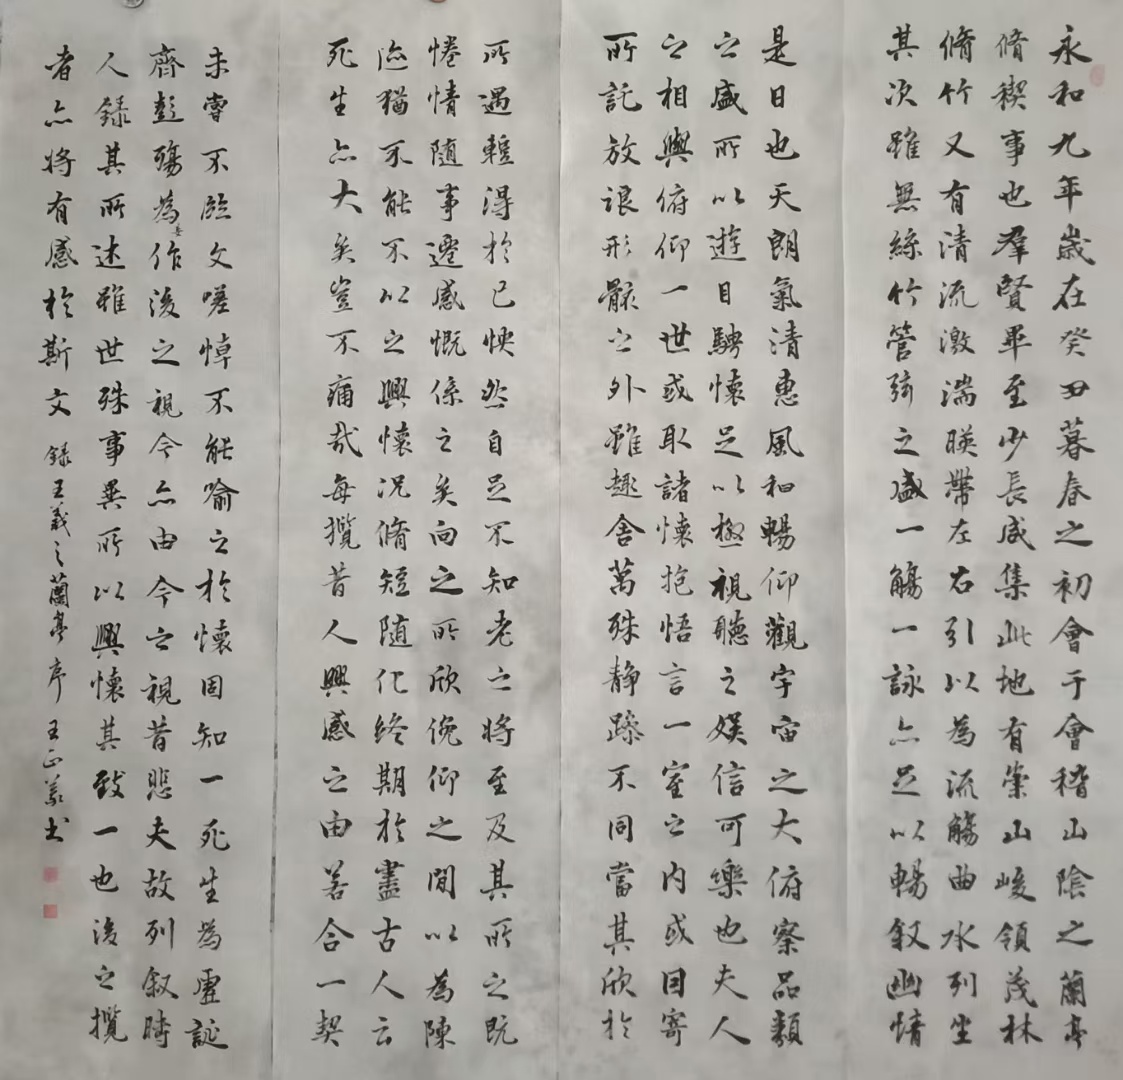 永和九年歲在癸丑暮春之初會于會稽山陰之蘭亭
脩稧事也羣賢畢至少長咸集此地有崇山峻領茂林
脩竹又有清流激湍暎帶左右引以為流觴曲水列坐
其次雖無絲竹管弦之盛一觴一詠亦足以暢敘幽情
是日也天朗氣清惠風和暢仰觀宇宙之大俯察品類
之盛所以遊目騁懷足以極視聽之娛信可樂也夫人
之相與俯仰一世或取諸懷抱悟言一室之內或因寄
所託放浪形骸之外雖趣舍萬殊静躁不同當其欣於
所遇輕得於己怏然自足不知老之將至及其所之既
惓情隨事遷感慨係之矣向之所欣俛仰之間以為陳
迹猶不能不以之興懷況脩短隨化終期於盡古人云
死生亦大矣豈不痛哉每攬昔人興感之由若合一契
未嘗不臨文嗟悼不能喻之於懷固知一死生為虛誕
齊彭殤為妄作後之視今亦由今之視昔悲夫故列敘時
人錄其所述雖世殊事異所以興懷其致一也後之攬
者亦將有感於斯文 錄王羲之蘭亭序 王正義書